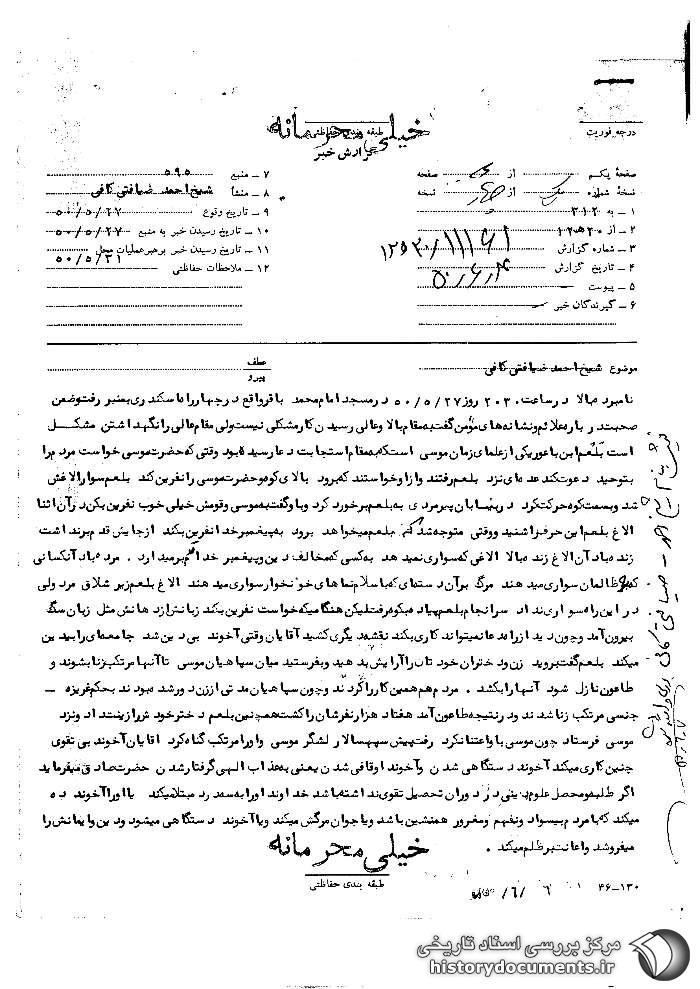 خیلی محرمانه
طبقه بندی حفاظتی
گزارش خبر
درجه فوریت
صفحهٔ یکم از صفحه
نسخهٔ شماره از نسخه
۱ – به ۳۱۲
۲ – از ۲۰ه۱۲
۳ – شماره گزارش
۴ – تاریخ گزارش ۵۰/۶/۴
۵ – پیوست
۶ – گیرندگان خبر
۷ – منبع ۵۹۵
۸ – منشأ شیخ احمد ضیافتی کافی
۹ – تاریخ وقوع ۵۰/۵/۲۷
۱۰ – تاریخ رسیدن خبر به منبع ۵۰/۵/۲۷
۱۱ – تاریخ رسیدن خبر برهبر عملیات محلی ۵۰/۵/۳۱
۱۲ – ملاحظات حفاظتی
موضوع شیخ احمد ضیافتی کافی
عطف
پیرو
نامبرده بالا در ساعت ۲۰۳۰ روز ۵۰/۵/۲۷ در مسجد امام محمد باقر واقع در چهارراه اسکندری بمنبر رفت و ضمن
صحبت درباره علائم و نشانه های مؤمن گفت به مقام بالا و عالی رسیدن کار مشکلی نیست ولی مقام عالی را نگهداشتن مشکل
است بلعم ابن باعور یکی از علمای زمان موسی است که به مقام استجابت دعا رسیده بود وقتی که حضرت موسی خواست مردم را
بتوحید دعوت کند عده ای نزد بلعم رفتند و از او خواستند که برود بالای کوه و حضرت موسی را نفرین کند بلعم سوار الاغش
شد و بسمت کوه حرکت کرد در بیابان پیرمردی به بلعم برخورد کرد و باو گفت به موسی و قومش خیلی خوب نفرین بکن در آن اثنا
الاغ بلعم این حرف را شنید و وقتی متوجه شد که بلعم میخواهد برود به پیغمبر خدا نفرین بکند از جایش قدم برنداشت
زنده باد آن الاغ زنده بالا الاغی که سواری نمیدهد به کسی که مخالف دین و پیغمبر خدا گام برمیدارد . مرده باد آنکسانی
که به ظالمان سواری میدهند مرگ بر آن دسته ای که با سلام نماهای خونخوار سواری میدهند الاغ بلعم زیر شلاق مرد ولی
در این راه سواری نداد سرانجام بلعم پیاده بکوه رفت لیکن هنگامیکه خواست نفرین بکند زبانش از دهانش مثل زبان سگ
بیرون آمد و چون دید از راه دعا نمیتواند کاری بکند نقشه دیگری کشید آقایان وقتی آخوند بی دین شد جامعه ای را بیدین
میکند بلعم گفت بروید زن و دختران خودتان را آرایش بدهید و بفرستید میان سپاهیان موسی تا آنها مرتکب زنا بشوند و
طاعون نازل شود آنها را بکشد . مردم هم همین کار را کردند و چون سپاهیان مدتی از زن دور شده بودند بحکم غریزه –
جنسی مرتکب زنا شدند و در نتیجه طاعون آمد هفتاد هزار نفرشان را کشت همچنین بلعم دختر خودش را زینت داد و نزد
موسی فرستاد چون موسی باو اعتنا نکرد رفت پیش سپهسالار لشگر موسی و او را مرتکب گناه کرد آقایان آخوند بی تقوی
چنین کاری میکند آخوند دستگاهی شدن و آخوند اوقافی شدن یعنی به عذاب الهی گرفتار شدن حضرت صادق میفرماید
اگر طلبه و محصل علوم دینی در دوران تحصیل تقوی نداشته باشد خداوند او را به سه درد مبتلا میکند یا او را آخوند ده
میکند که با مردم بیسواد و نفهم و مغرور همنشین باشد و یا جوان مرگش میکند و یا آخوند دستگاهی میشود و دین و ایمانش را
میفروشد و اعانت بر ظلم میکند .
خیلی محرمانه
طبقه بندی حفاظتی
۴۶–۱۳۰
مرکز بررسی اسناد تاریخی
historydocuments.ir